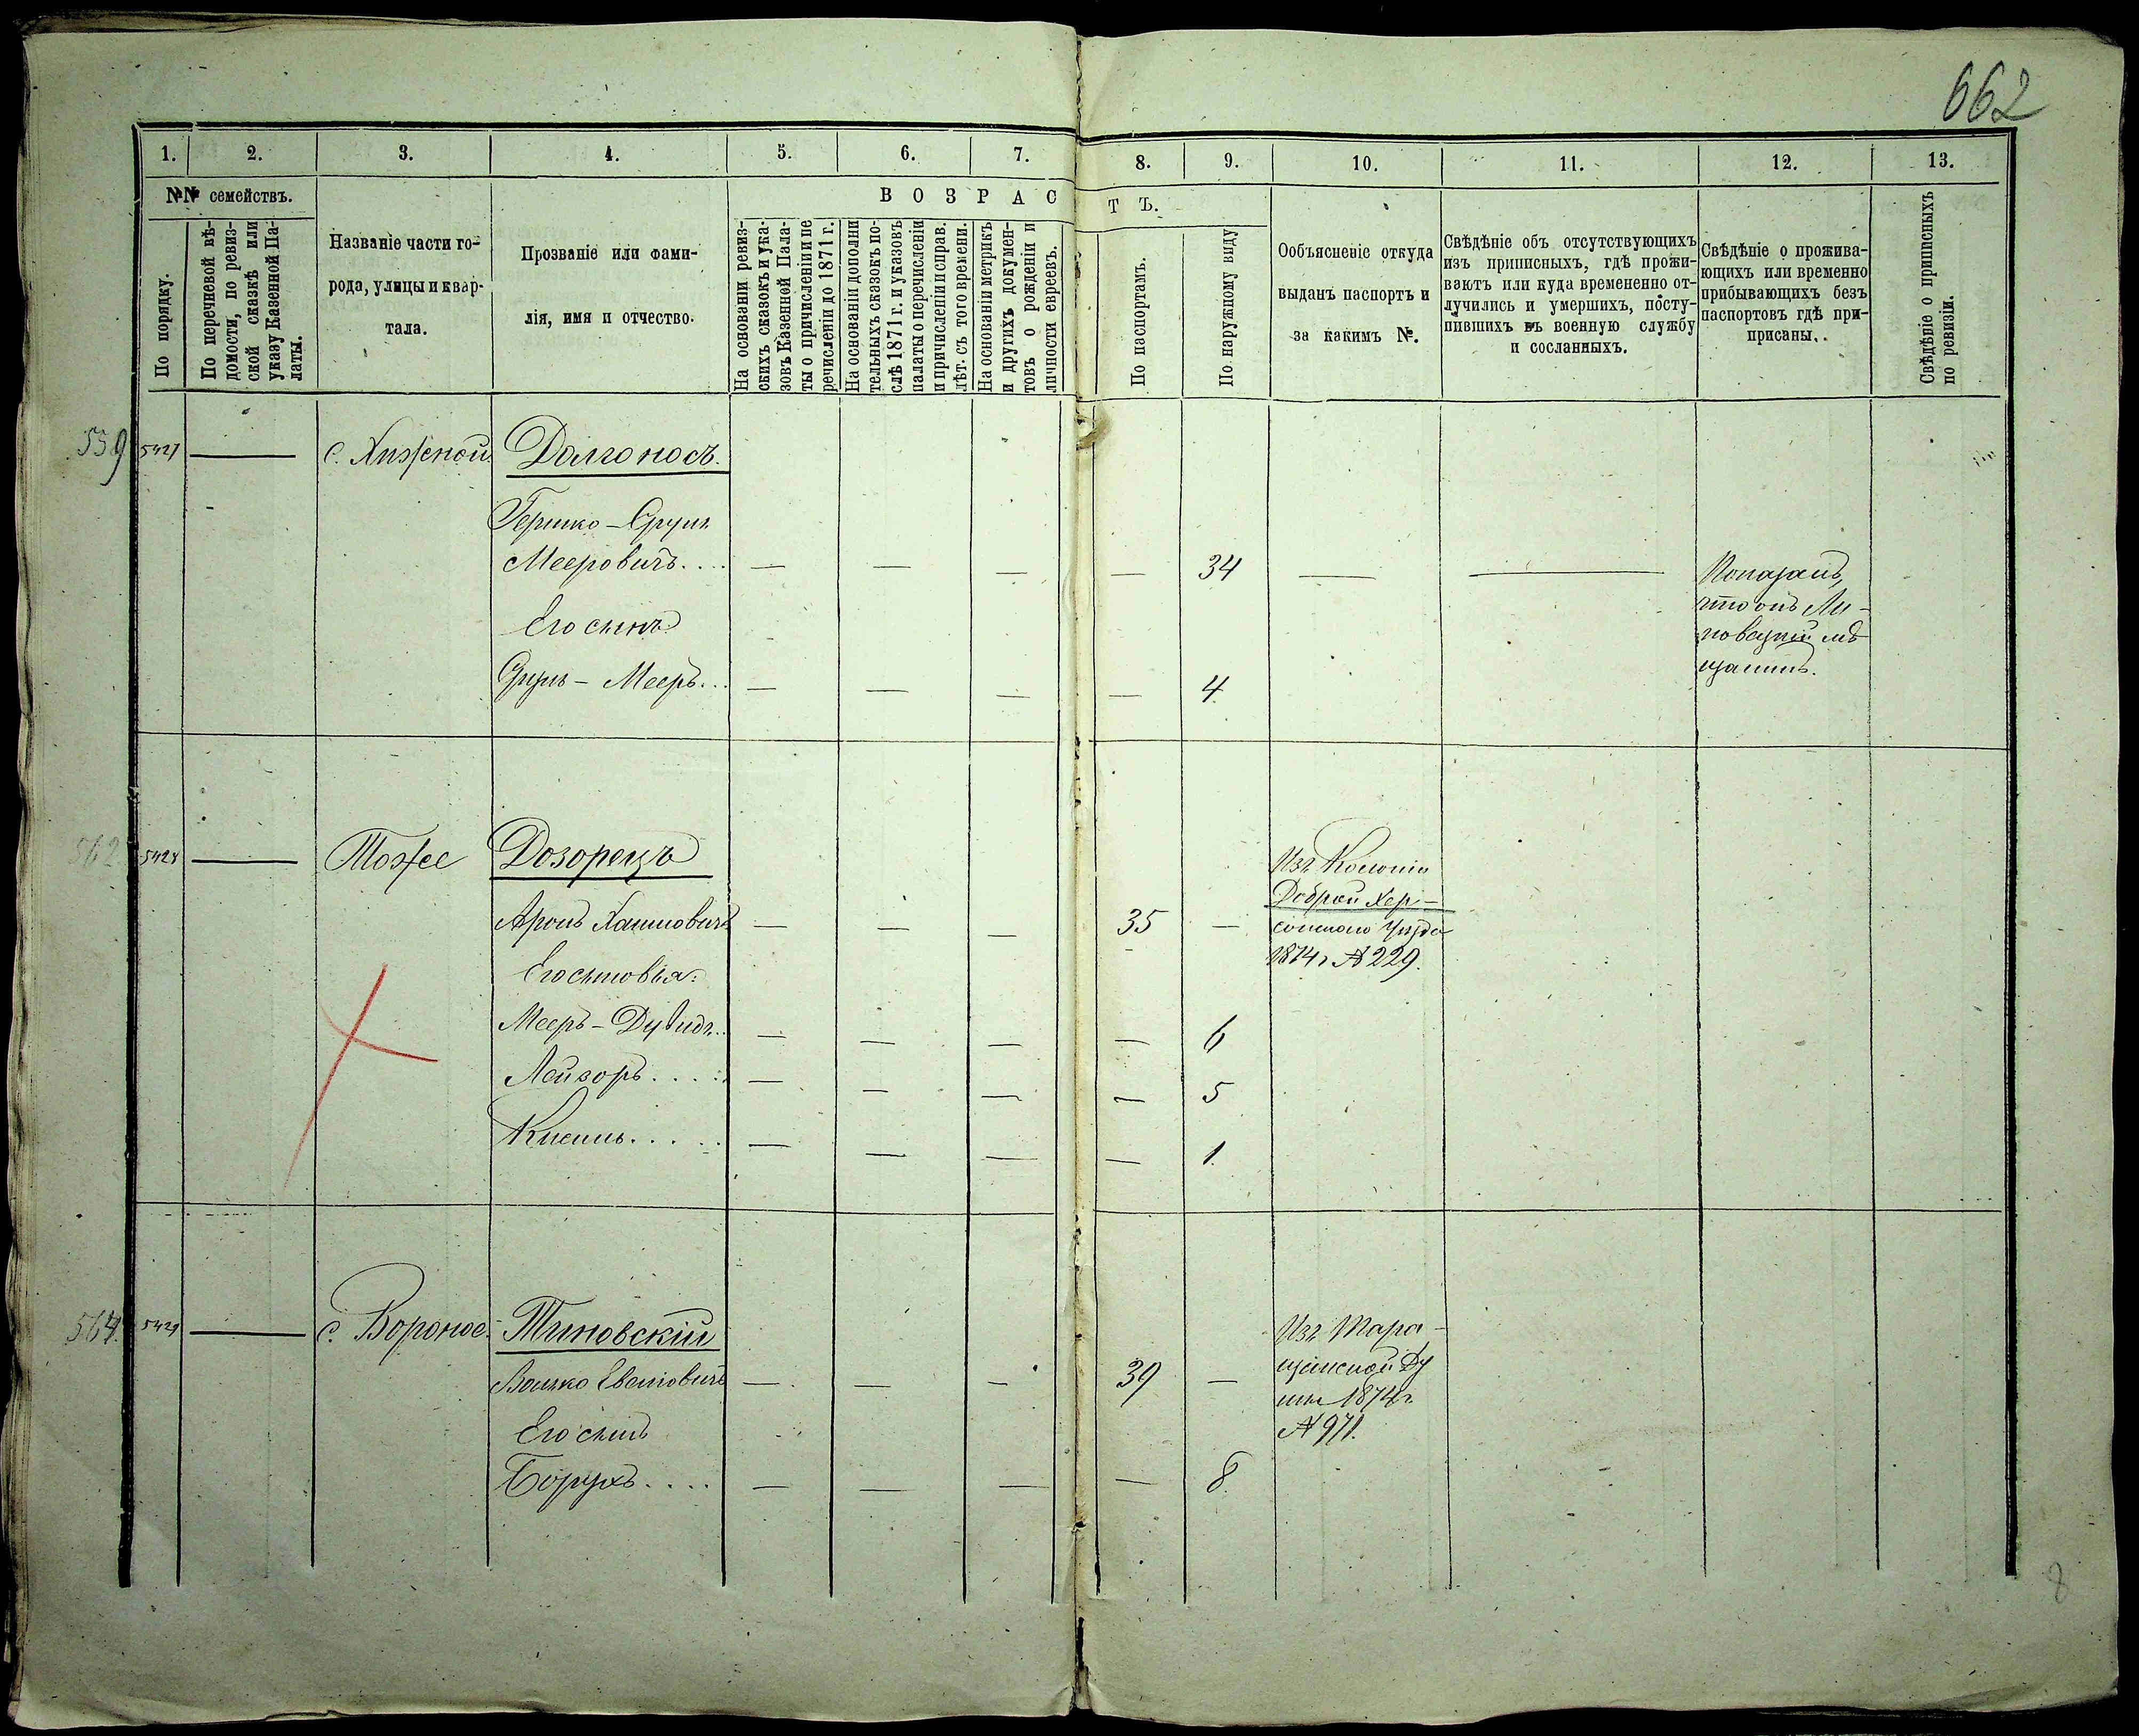 662
1. 2. 3. 4. 5. 6. 7. 8. 9. 10. 11. 12. 13.
№№ семействъ.
По порядку.
По перечневой вѣ-
домости, по ревиз-
ской сказкѣ или
указу Казенной Па-
латы.
Названіе части го-
рода, улицы и квар-
тала.
Прозваніе или фами-
лія, имя и отчество.
В О З Р А С Т Ъ.
На основаніи ревиз-
скихъ сказокъ и ука-
зовъ Казенной Пала-
ты о причисленіи и пе
речисленіи до 1871 г.
На основаніи дополни
тельныхъ сказокъ по-
слѣ 1871 г. и указовъ
палаты о перечисленіи
и причисленіи справ.
лѣт. съ того времени.
На основаніи метрикъ
и другихъ докумен-
товъ о рожденіи и
личности евреевъ.
По паспортамъ.
По наружному виду
Ообъясненіе откуда
выданъ паспортъ и
за какимъ №.
Свѣдѣніе объ отсутствующихъ
изъ приписныхъ, гдѣ прожи-
ваютъ или куда временно от-
лучились и умершихъ, посту-
пившихъ въ военную службу
и сосланныхъ.
Свѣдѣніе о прожива-
ющихъ или временно
прибывающихъ безъ
паспортовъ гдѣ при-
писаны..
Свѣдѣніе о приписныхъ
по ревизіи.
559 5427 — с. Долгоносъ.
Гершко - Сруль
Мееровичъ.... — — — — 34 — —
Показалъ,
что онъ Ли-
повецкій мѣ
щанинъ.
Его сынъ
Сруль - Мееръ... — — — — 4
562 5428 — Тоже Дозорецъ
Аронъ Хаимовичъ — — — 35 —
Изъ Колоніи
Доброй Хер-
сонскаго уѣзда
1874 г № 229.
Его сыновья:
Мееръ - Дувидъ.. — — — — 6
Лейзоръ..... — — — — 5
..... — — — — 1.
564. 5429 — с. Вороное. Тиновскій
Волько — — — 39 —
Изъ Тара-
щанской Ду
мы 1874 г.
№ 971.
Его сынъ
Борухъ.... — — — — 8.
8